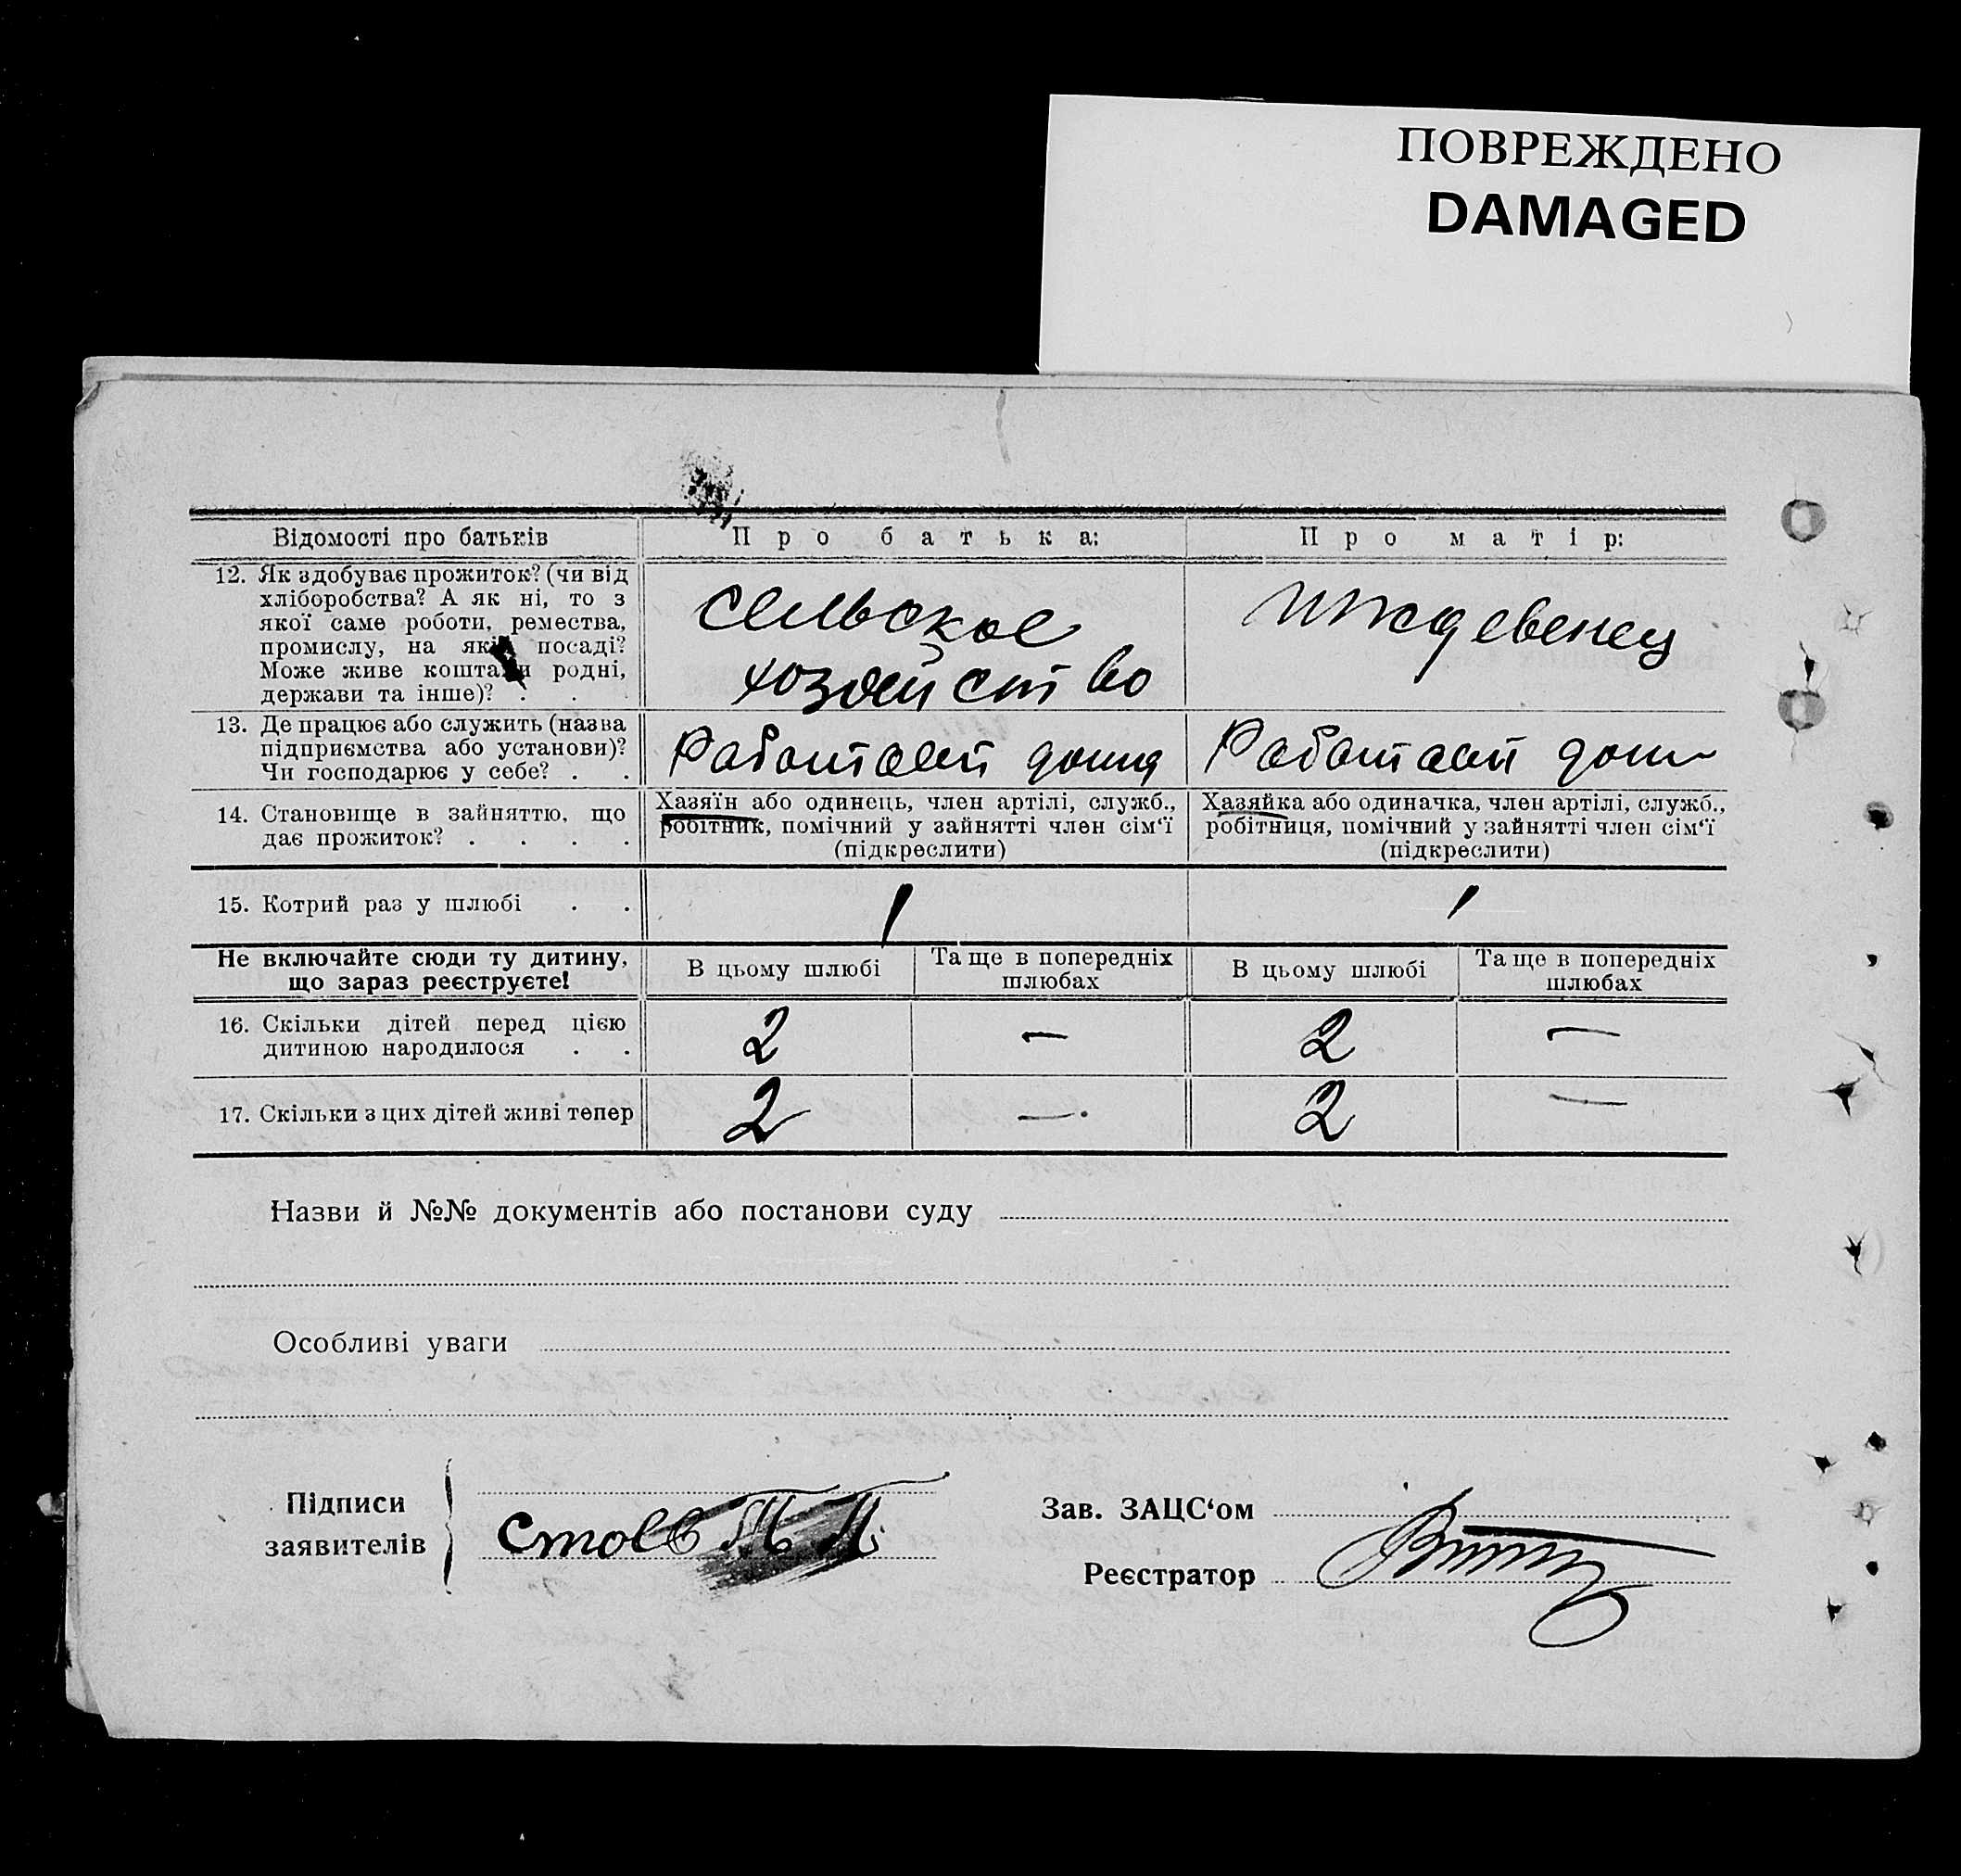 ПОВРЕЖДЕНО
DAMAGED
Відомості про батьків
Про батька:
Про матір:
12. Як здобуває прожиток? (чи від
хліборобства? А як ні, то з
якої саме роботи, ремества,
промислу, на якій посаді?
Може живе коштами родні,
держави та інше)? . .
сельское
хозяйство
иждевенец
13. Де працює або служить (назва
підприємства або установи)?
Чи господарює у себе? . .
Работает дома
Работает дом
14. Становище в зайняттю, що
дає прожиток? . . . .
Хазяїн або одинець, член артілі, служб.,
робітник, помічний у зайнятті член сім‘ї
(підкреслити)
Хазяйка або одиначка, член артілі, служб.,
робітниця, помічний у зайнятті член сім‘ї
(підкреслити)
15. Котрий раз у шлюбі . .
1
1
Не включайте сюди ту дитину,
що зараз реєструєте!
В цьому шлюбі
Та ще в попередніх
шлюбах
В цьому шлюбі
Та ще в попередніх
шлюбах
16. Скільки дітей перед цією
дитиною народилося . .
2
—
2
—
17. Скільки з цих дітей живі тепер
2
—
2
—
Назви й №№ документів або постанови суду
Особливі уваги
Підписи
заявителів
Зав. ЗАЦС‘ом
Реєстратор